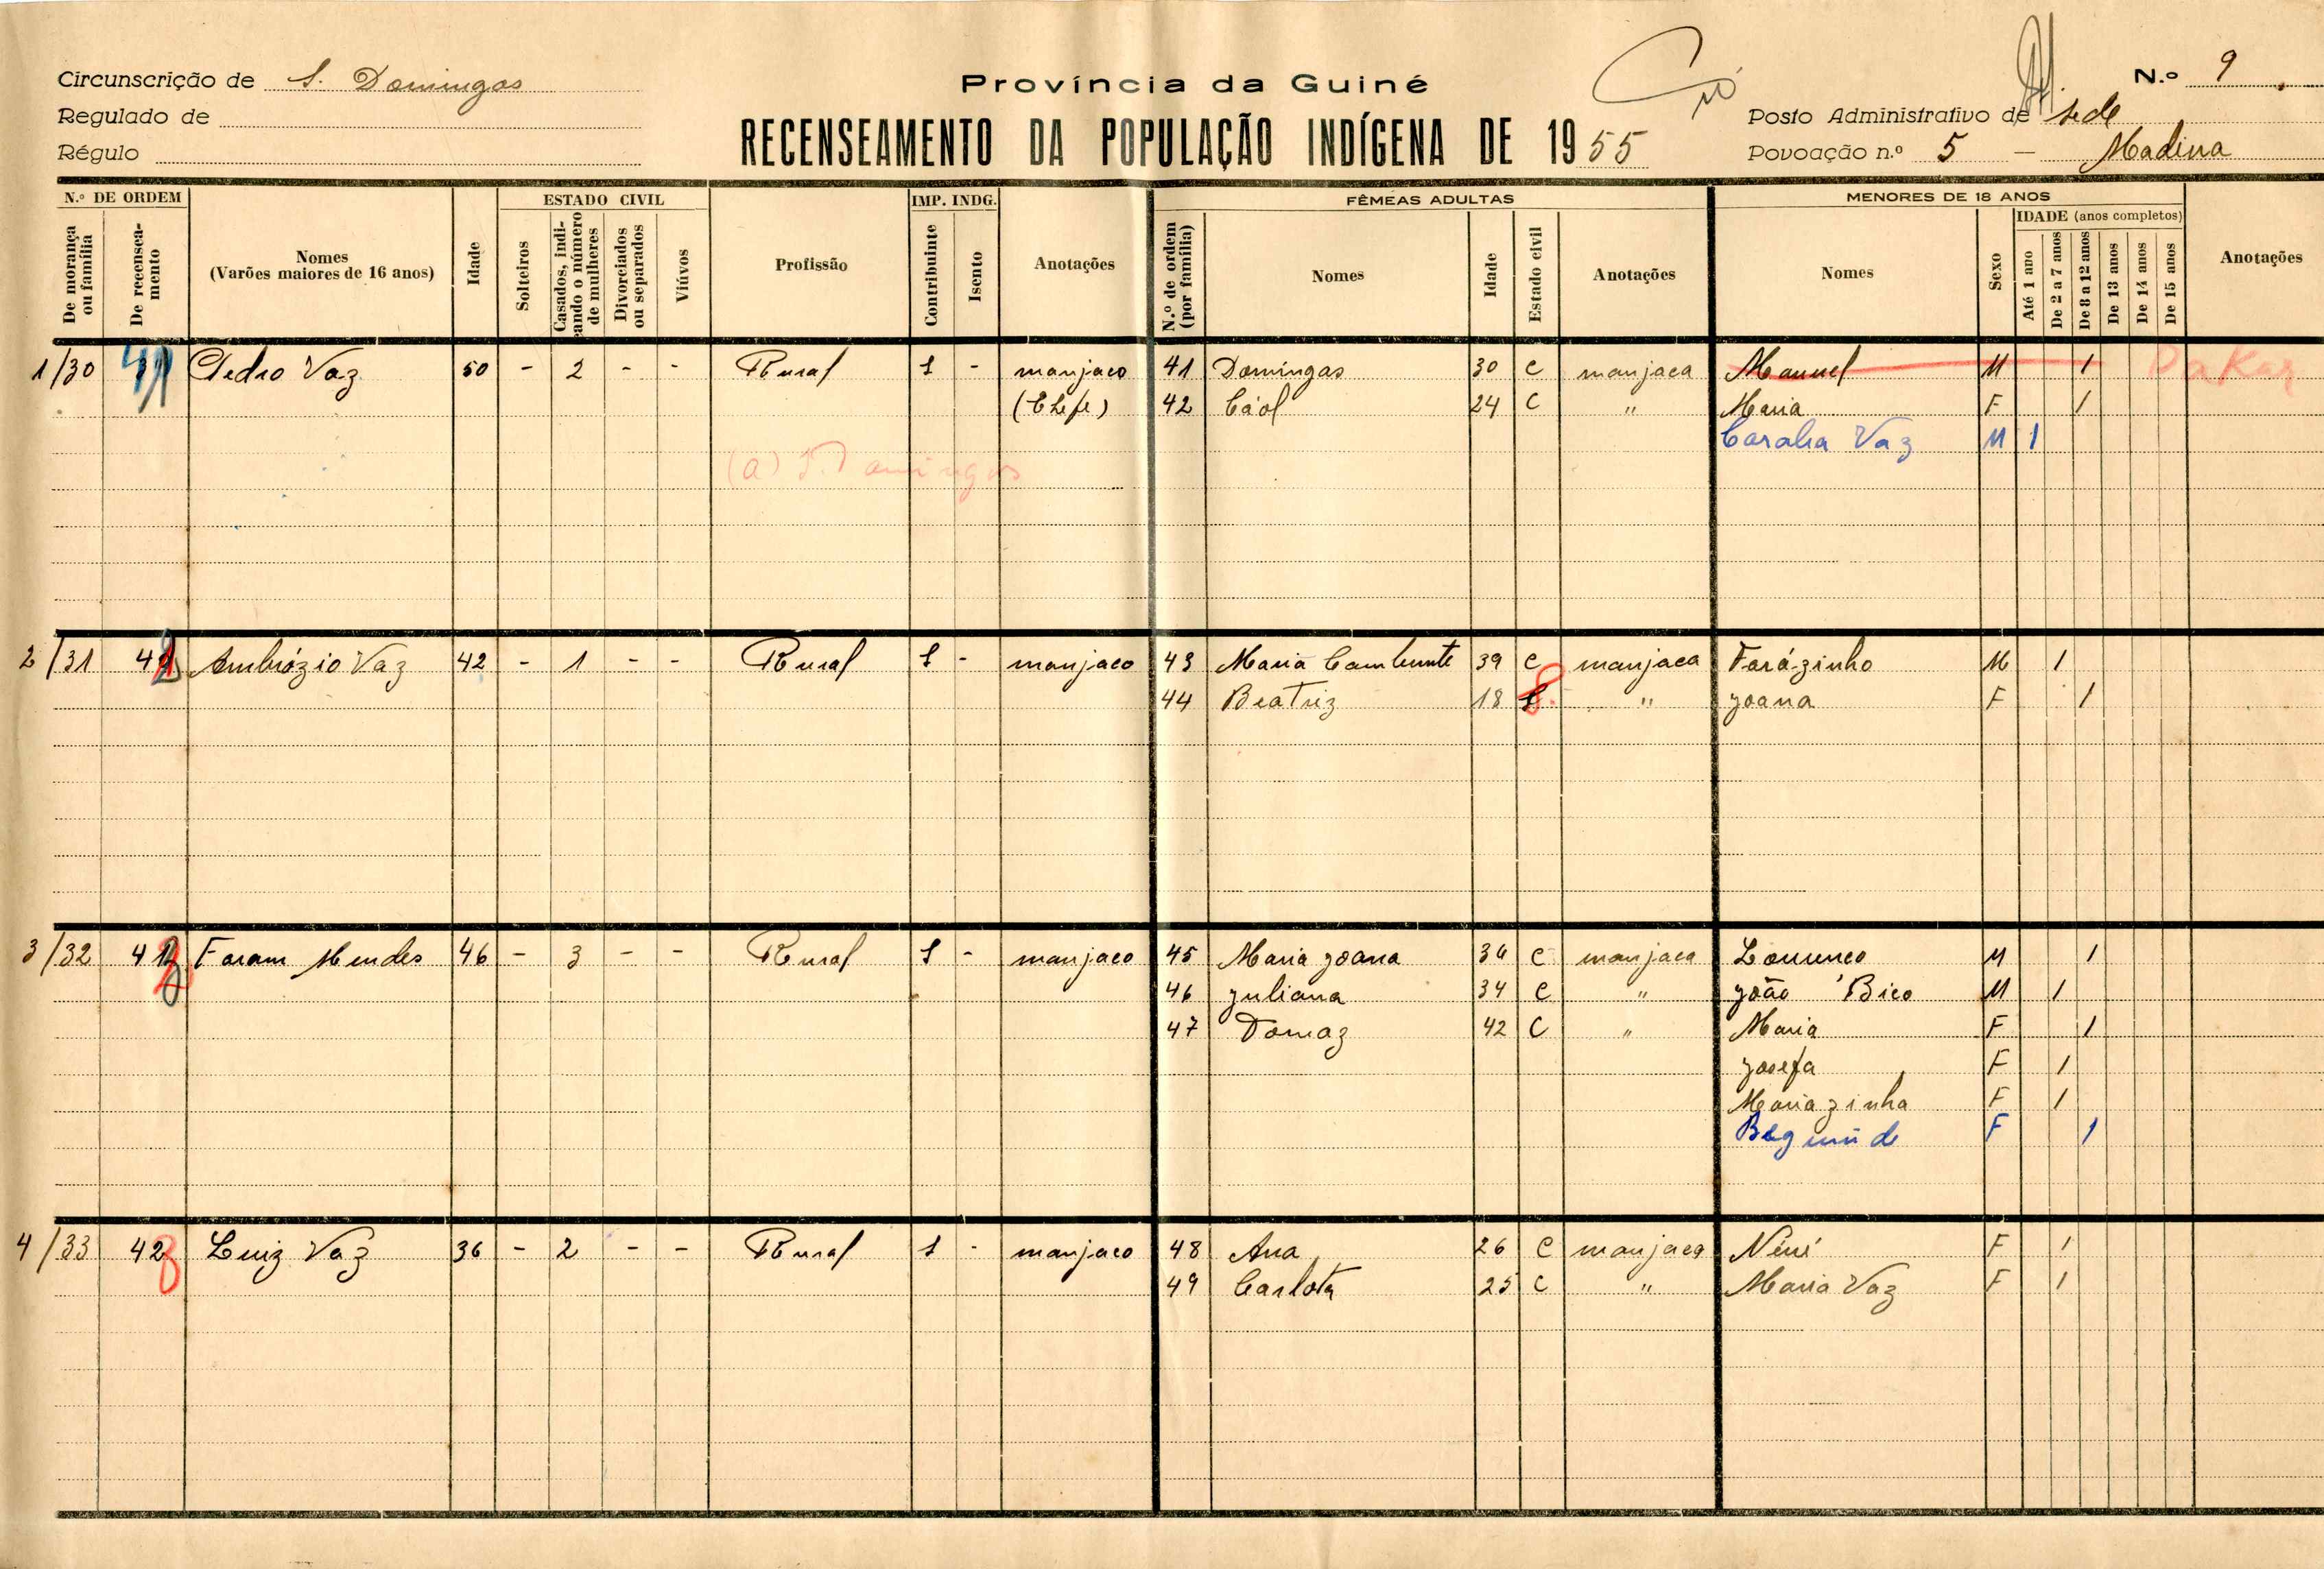 Circunscrição de S. Domingos
Província da Guiné
N.º 9
Regulado de
Posto Administrativo de sede
Régulo
RECENSEAMENTO DA POPULAÇÃO INDÍGENA DE 1955
Povoação n.º 5 – Madina
N.º DE ORDEM
ESTADO CIVIL
IMP. INDG.
FÊMEAS ADULTAS
MENORES DE 18 ANOS
De morança ou família
De recenseamento
Nomes
(Varões maiores de 16 anos)
Idade
Solteiros
Casados, indicando o número de mulheres
Divorciados ou separados
Viúvos
Profissão
Contribuinte
Isento
Anotações
N.º de ordem (por família)
Nomes
Idade
Estado civil
Anotações
Nomes
Sexo
IDADE (anos completos)
Até 1 ano
De 2 a 7 anos
De 8 a 12 anos
De 13 anos
De 14 anos
De 15 anos
Anotações
1/30 Pedro Vaz 50 - 2 - - Rural 1 - manjaco 41 Domingas 30 C manjaca Manuel M 1 Dakar
(Chefe) 42 Cáol 24 C " Maria F 1
Vaz M 1
(a) S. Domingos
2/31 42 Ambrózio Vaz 42 - 1 - - Rural 1 - manjaco 43 Maria 39 C manjaca Farázinho M 1
44 Beatriz 18 " Joana F 1
3/32 Faram Mendes 46 - 3 - - Rural 1 - manjaco 45 Maria Joana 36 C manjaca Lourenco M 1
46 Juliana 34 C " João Bico M 1
47 Domaz 42 C " Maria F 1
Josefa F 1
Mariazinha F 1
F 1
4/33 42 Luiz Vaz 36 - 2 - - Rural 1 - manjaco 48 Ana 26 C manjaca Nené F 1
49 Carlota 25 C " Maria Vaz F 1